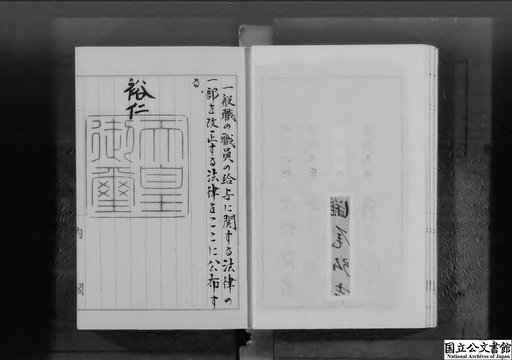 一般職の職員の給与に関する法律の
一部を改正する法律をここに公布す
る。
裕仁
天皇
御璽
内閣
国立公文書館
National Archives of Japan